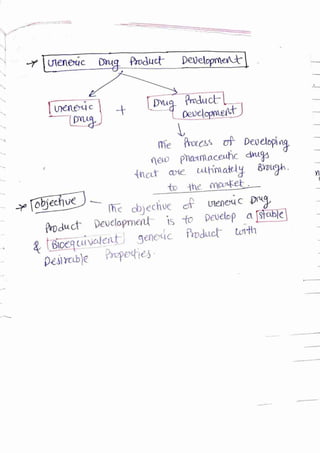 Generic Drug Product Development
Generic Drug + Drug Product Development
The Process of Developing
new pharmaceutic drugs
that are ultimately Brough.
to the market.
objective - The objective of Generic Drug
Product Development is to Develop a stable
& Bioequivalent generic Product with
Desirable Properties.